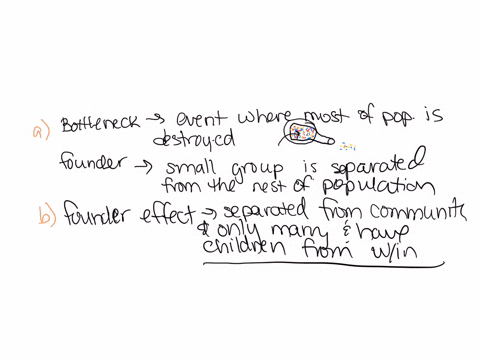 a) Bottleneck → event where most of pop. is
destroyed
founder → small group is separated
from the rest of population
b) founder effect → separated from community
& only marry & have
children from w/in